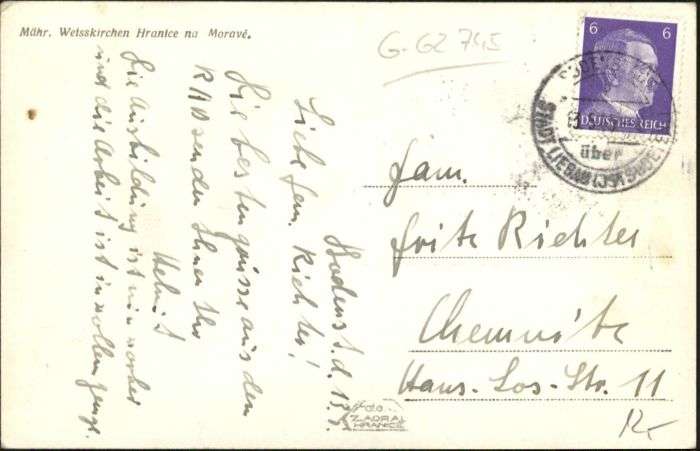 Mähr. Weisskirchen Hranice na Moravě.
G. G2 745
6 6
DEUTSCHES REICH
über
STADT LIEBAU
Bodenst. d. 13.
Liebe Fam. Richter!
Die besten Grüsse aus dem
RAD senden Ihnen Ihr
Helmit
Die Ausbildung ist nun vorbei
und die Arbeit ist in vollem Gange.
Fam.
Fritz Richter
Chemnitz
Hans-Los-Str. 11
Foto
ZADRAŽ
HRANICE
12,-